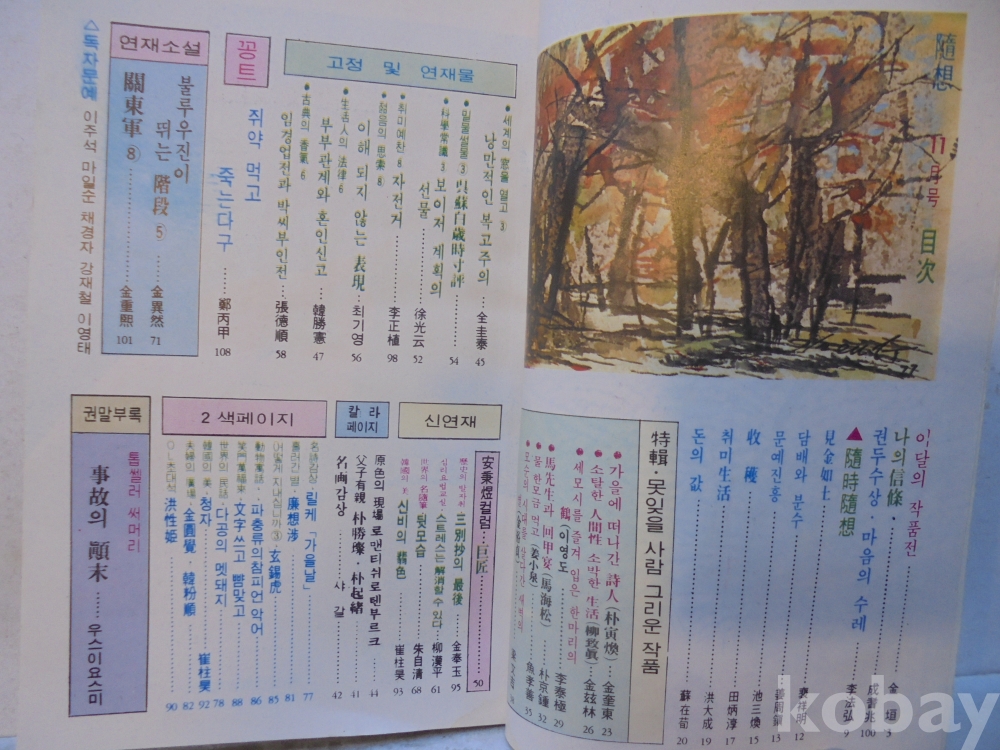 隨想
11月号 目次
이달의 작품전
나의 信條
권두수상·마음의 수레
▲隨時隨想
見金如土
담배와 분수
문예진흥
收穫
취미生活
돈의 값
金 垣 3
成耆兆 100
李法弘 9
裵祥明 12
池三煥 15
田炳淳 17
洪大成 19
蘇在荀 20
特輯·못잊을 사람 그리운 작품
가을에 떠나간 詩人(朴寅煥)…金奎東 23
소탈한 人間性 소박한 生活(柳致眞)…金玆林 26
세모시를 즐겨 입은 한마리의
鶴(이영도)…李泰極 29
馬先生과 回甲宴(馬海松)…朴京鍾 32
물 한모금 먹고(姜小泉)…魚孝善 35
고정 및 연재물
●세계의 窓을 열고 ③
낭만적인 복고주의…全圭泰 45
●밀물썰물 ③ 54
●科學常識 3 보이저 계획의
선물…徐光云 52
취미예찬 8 자전거…李正植 98
●젊음의 思索 8
이해 되지 않는 表現…최기영 56
●生活人의 法律 6
부부관계와 혼인신고…韓勝憲 47
●古典의 香氣 6
임경업전과 박씨부인전…張德順 58
꽁트
쥐약 먹고
죽는다구…鄭丙甲 108
연재소설
불루우진이
뛰는 階段 ⑤…金異然 71
關東軍 ⑧…金重熙 101
△독자문예 이주석 마일순 채경자 강재철 이영태
신연재
安秉煜컬럼·巨匠 50
三別抄의 最後…金奉玉 95
스트레스는 解消할 수 있다…柳漢平 61
世界의 名隨筆 뒷모습…朱自清 68
韓國의 美 신비의 翡色…崔柱昊 93
칼라
페이지
原色의 現場 로맨티쉬로텐부르크 44
父子有親 朴勝璨·朴起緖 41
名画감상…샤갈 42
2색페이지
名詩감상·릴케「가을날」 77
흘러간 별·廉想涉 81
어떻게 지내십니까 ③·玄錫虎 85
動物寓話·파충류의참피언 악어 86
笑門萬福來·文字 쓰고 뺨맞고 88
世界의 民話·다공의 멧돼지 78
韓國의 美·청자…崔柱昊 92
夫婦의 廣場·金圓覺 韓粉順 82
OL초대석·洪性姫 90
권말부록
톱쎌러 써머리
事故의 顚末…우스이요스미
kobay